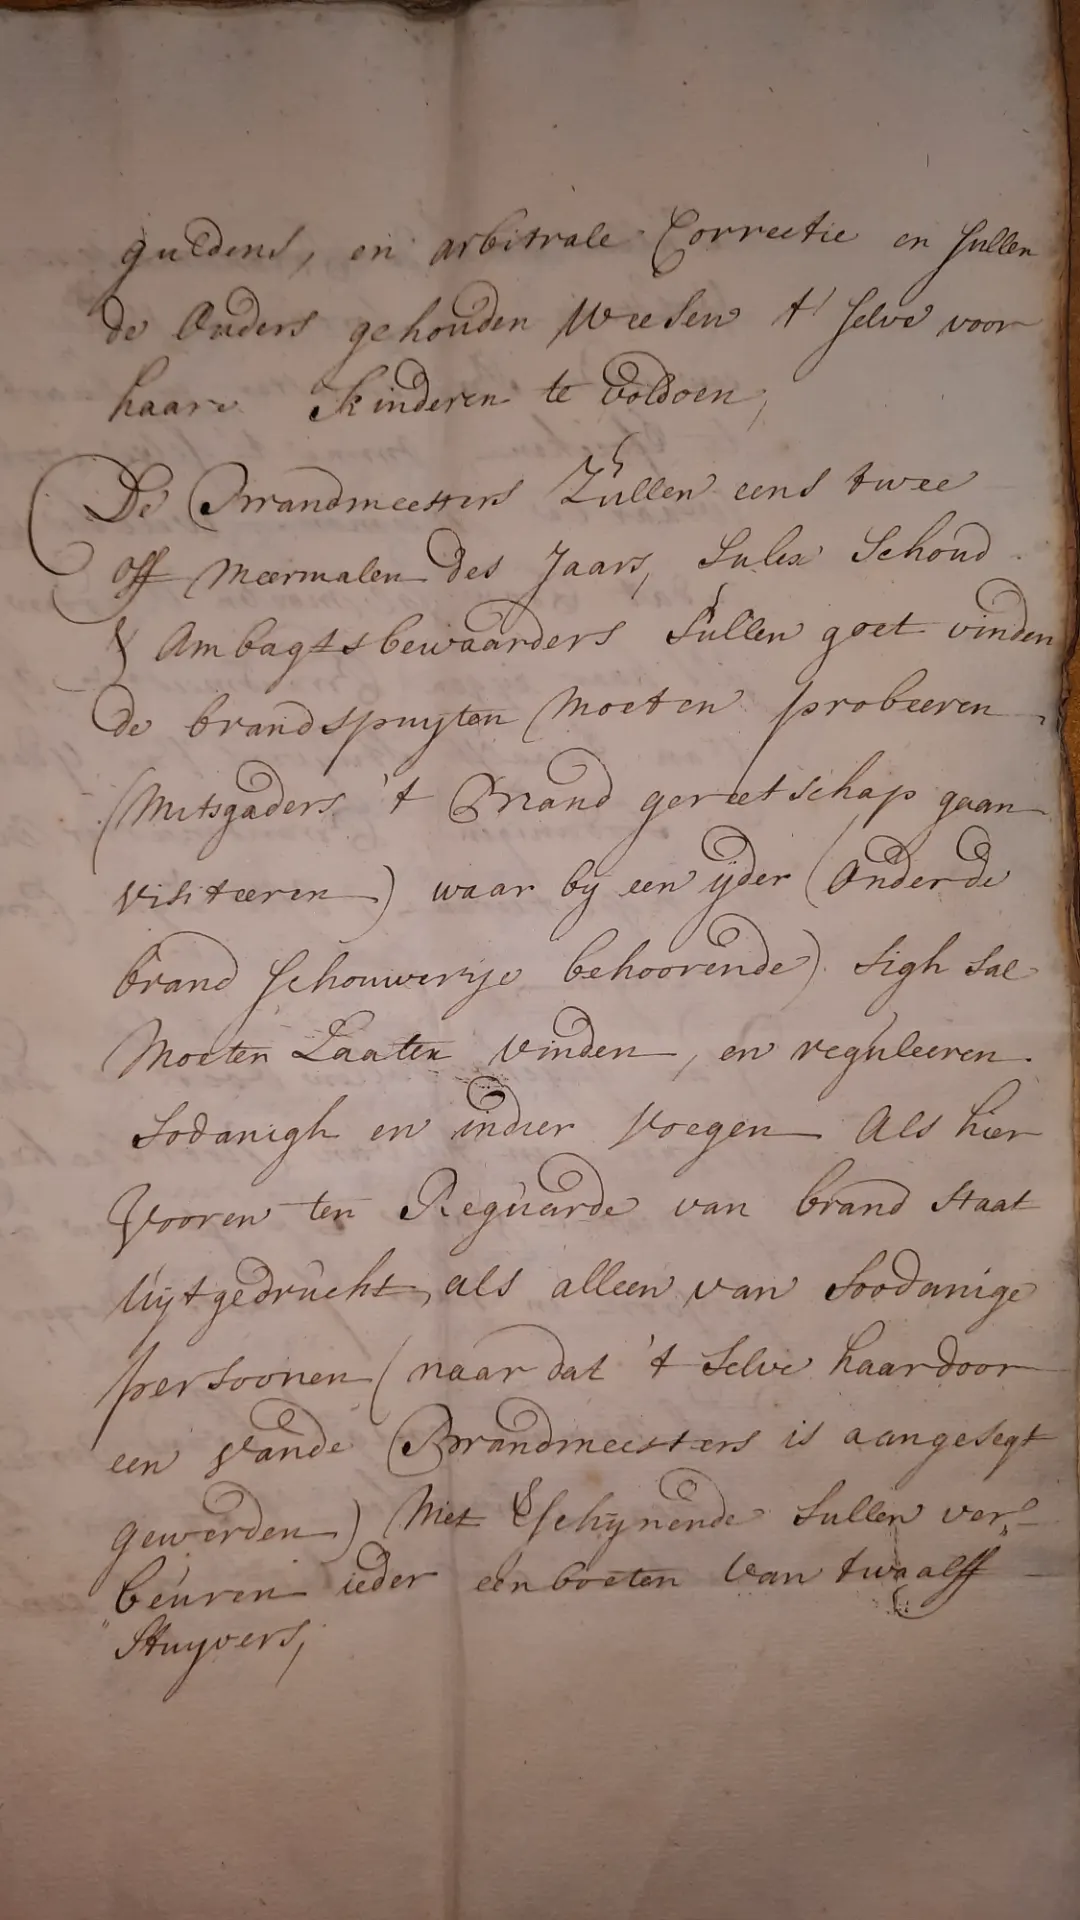 guldens, en arbitrale Correctie en sullen
de Ouders gehouden Weesen t' selve voor
haare Kinderen te Voldoen,
De Brandmeesters Zullen eens twee
off Meermalen des Jaars, Sulx Schoud
& Ambagtsbewaarders Sullen goet vinden
de brandspuyten Moeten probeeren
(Mitsgaders 't Brand gereetschap gaan
visiteeren) waar by een yder (Onder de
brand schouwerije behoorende) sigh sal
Moeten Laaten vinden, en reguleeren
Sodanigh en indier Voegen Als hier
Vooren ten Reguarde van brand staat
Uytgedrucht, als alleen van Soodanige
persoonen (naar dat 't selve haar door
een Vande Brandmeesters is aangesegt
gewerden) Niet Eschynende sullen ver-
beuren ieder een boeten Van twaalff
Stuyvers,